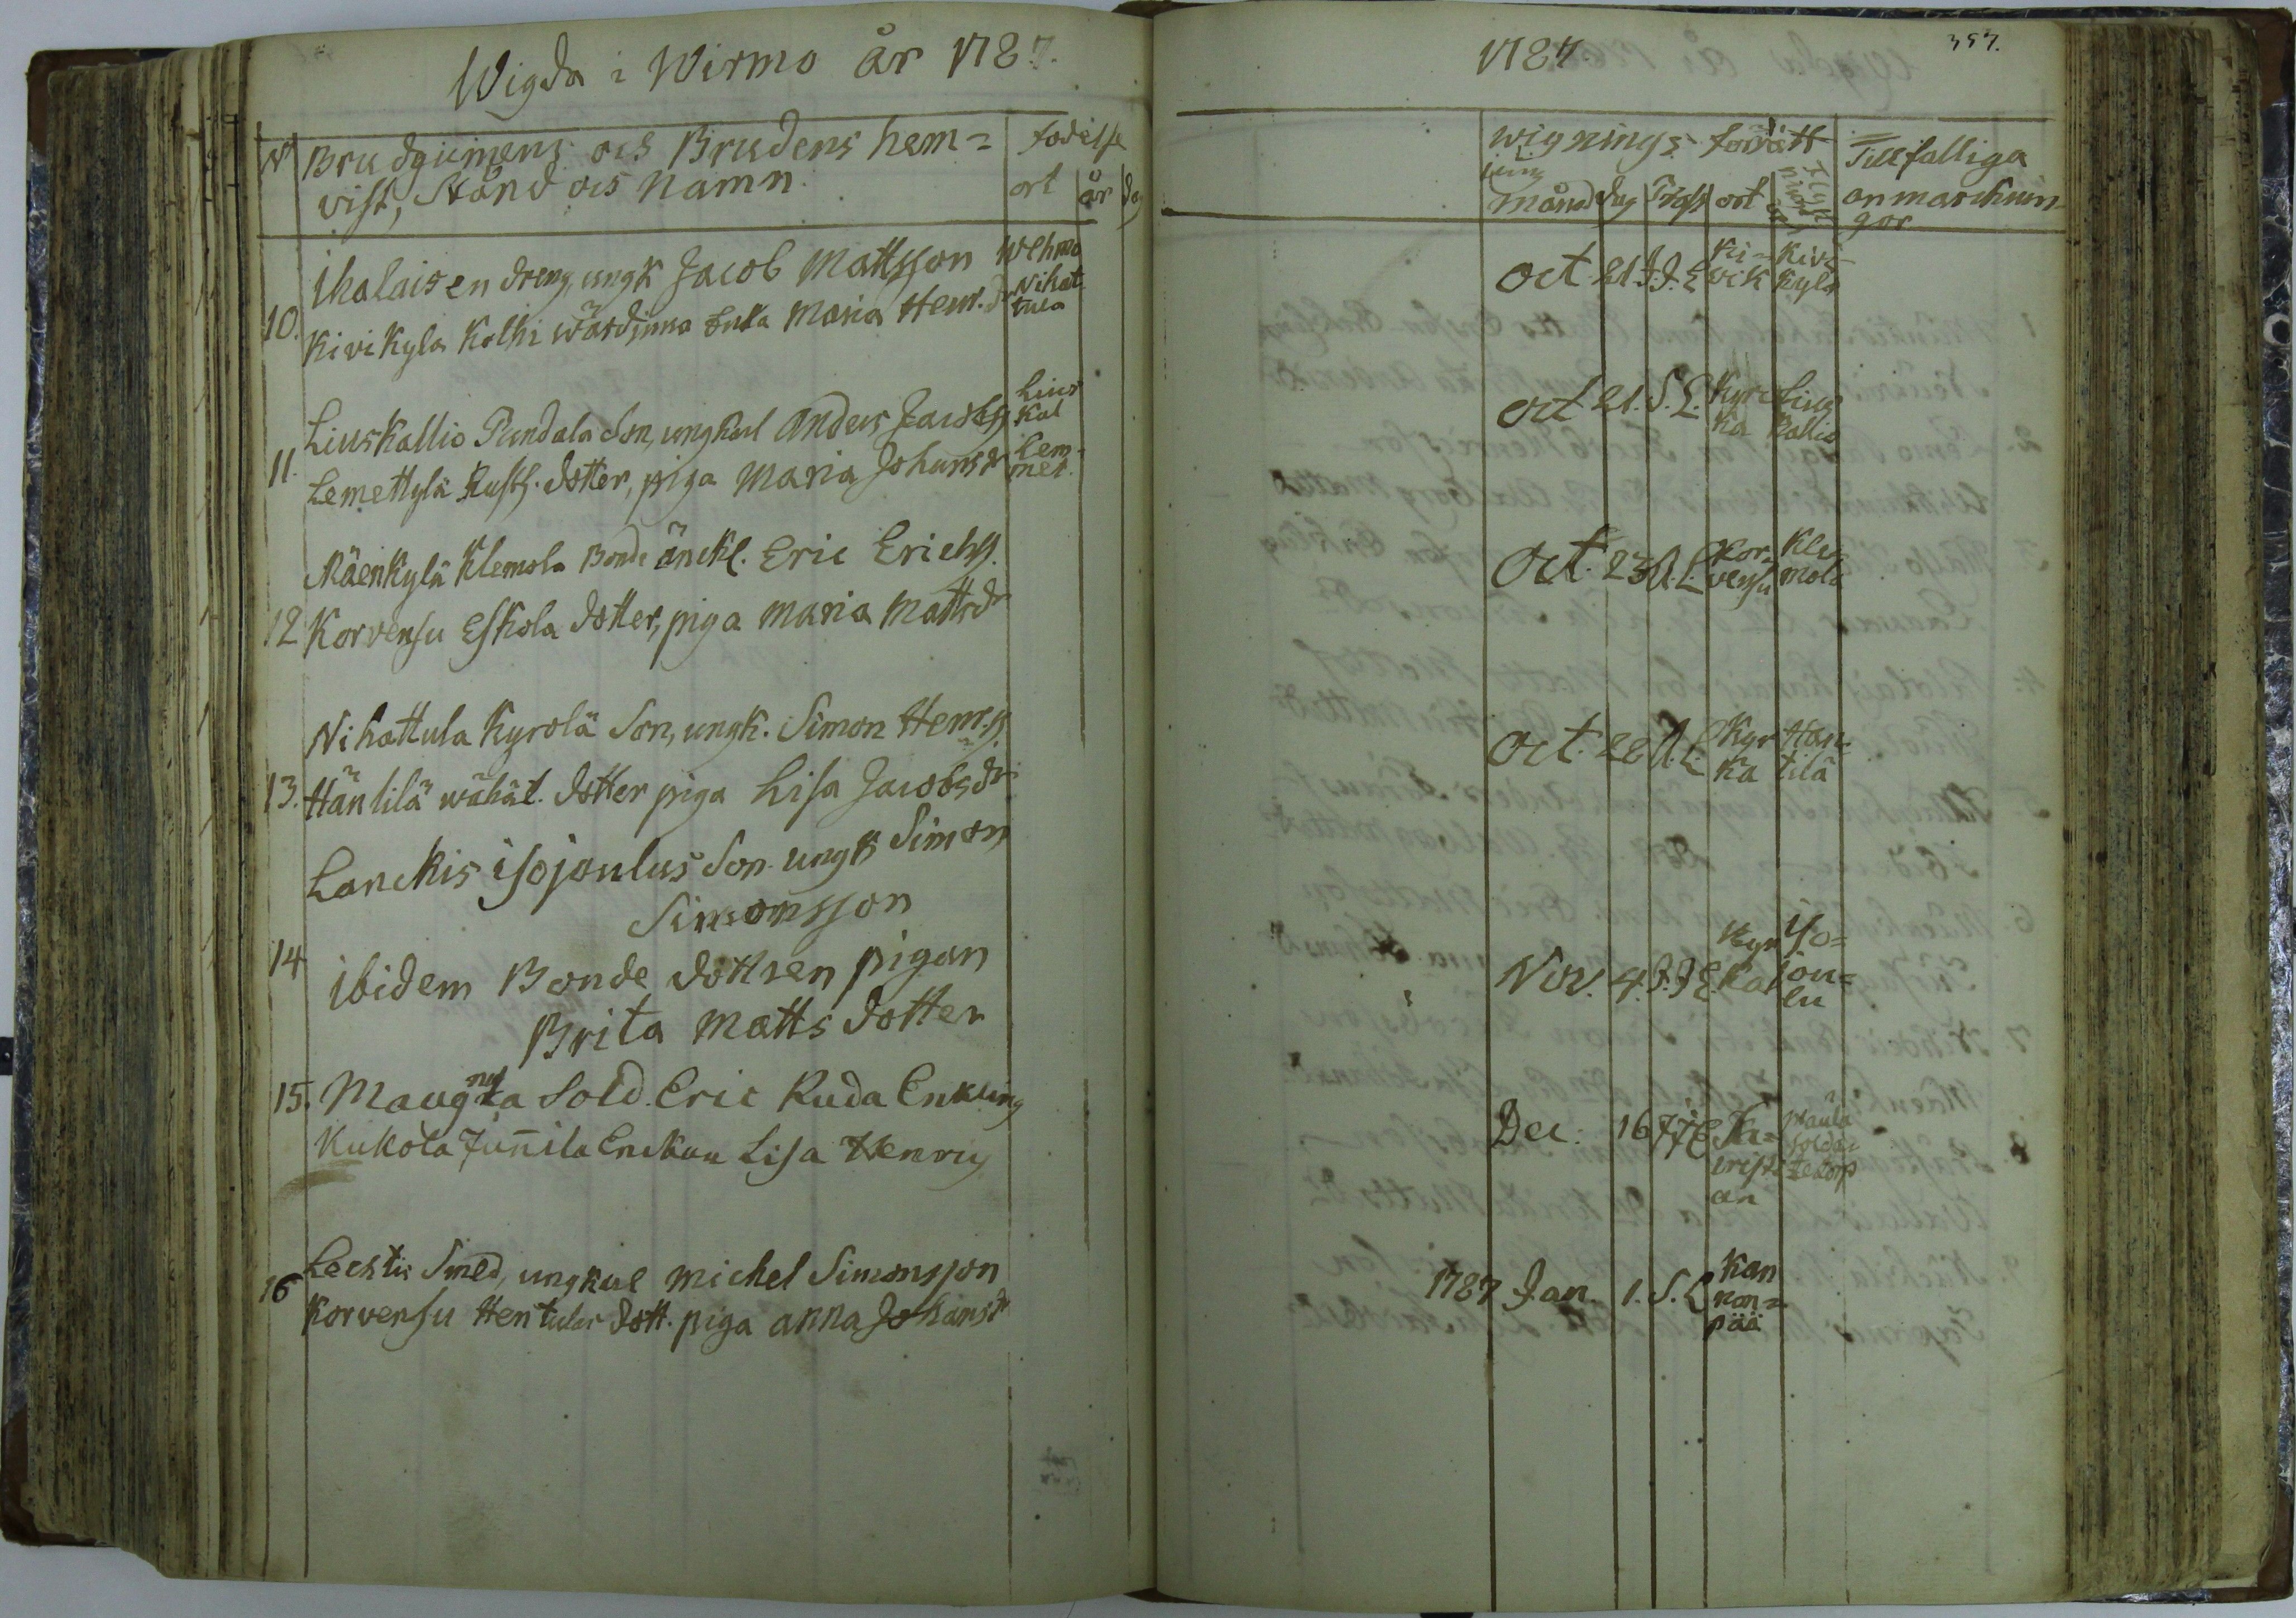 Wigda i Wirmo år 1787.
N Brudgumens och Brudens hem=
vist, Stånd och Namn.
födelse
ort år dag
Ihalaisen dreng, ungk Jacob Mattsson Wehmo
10. Kivikyla Kolhi wärdinna Enka Maria Henr. dr Nihat
tula
Liuskallio Pundala Son, ungkarl Anders Jacobss Lius
kal
11. Lemettylä Rusth. dotter, piga Maria Johansdr Lem-
met.
Mäenkylä Klemola Bonde änckl. Eric Erichss.
12 Korvensu Eskola dotter, piga Maria Mattsdr
Nihattula Kyrolä Son, ungk. Simon Henr.ss.
13. Häntilä wähät. dotter piga Lisa Jacobsdr
Lanckis isojoulus Son ungk Simon
Simonsson
14 ibidem Bonde dottren pigan
Brita Matts dotter
15. Sold. Eric Ruda Enkling
Kukola Junnila Enckan Lisa Henrs
Leestis Smed, ungkarl Michel Simonsson
16 Korvensu Hentulas dott. piga Anna Johansdr
1787 357.
wignings förrätt
månad dag Präst ort
Tillfälliga
anmärcknin
gar
Oct. 21 J.J.E Ki= Kivi-
vik kylä
Oct 21. S.L. Kyrc Lius
ka kallio
Oct. 23 A.L. Kor- Kle
vensu mola
Oct. 28 A.L. Kyr Hän-
ka tilä
Nov. 4. J.J.E. Kyr Iso=
ka jou=
lu
Dec. 16 J.J.E Sa= Maula
crist= solda=
an tetorp
1787 Jan. 1. S.L Kan
kan=
pää